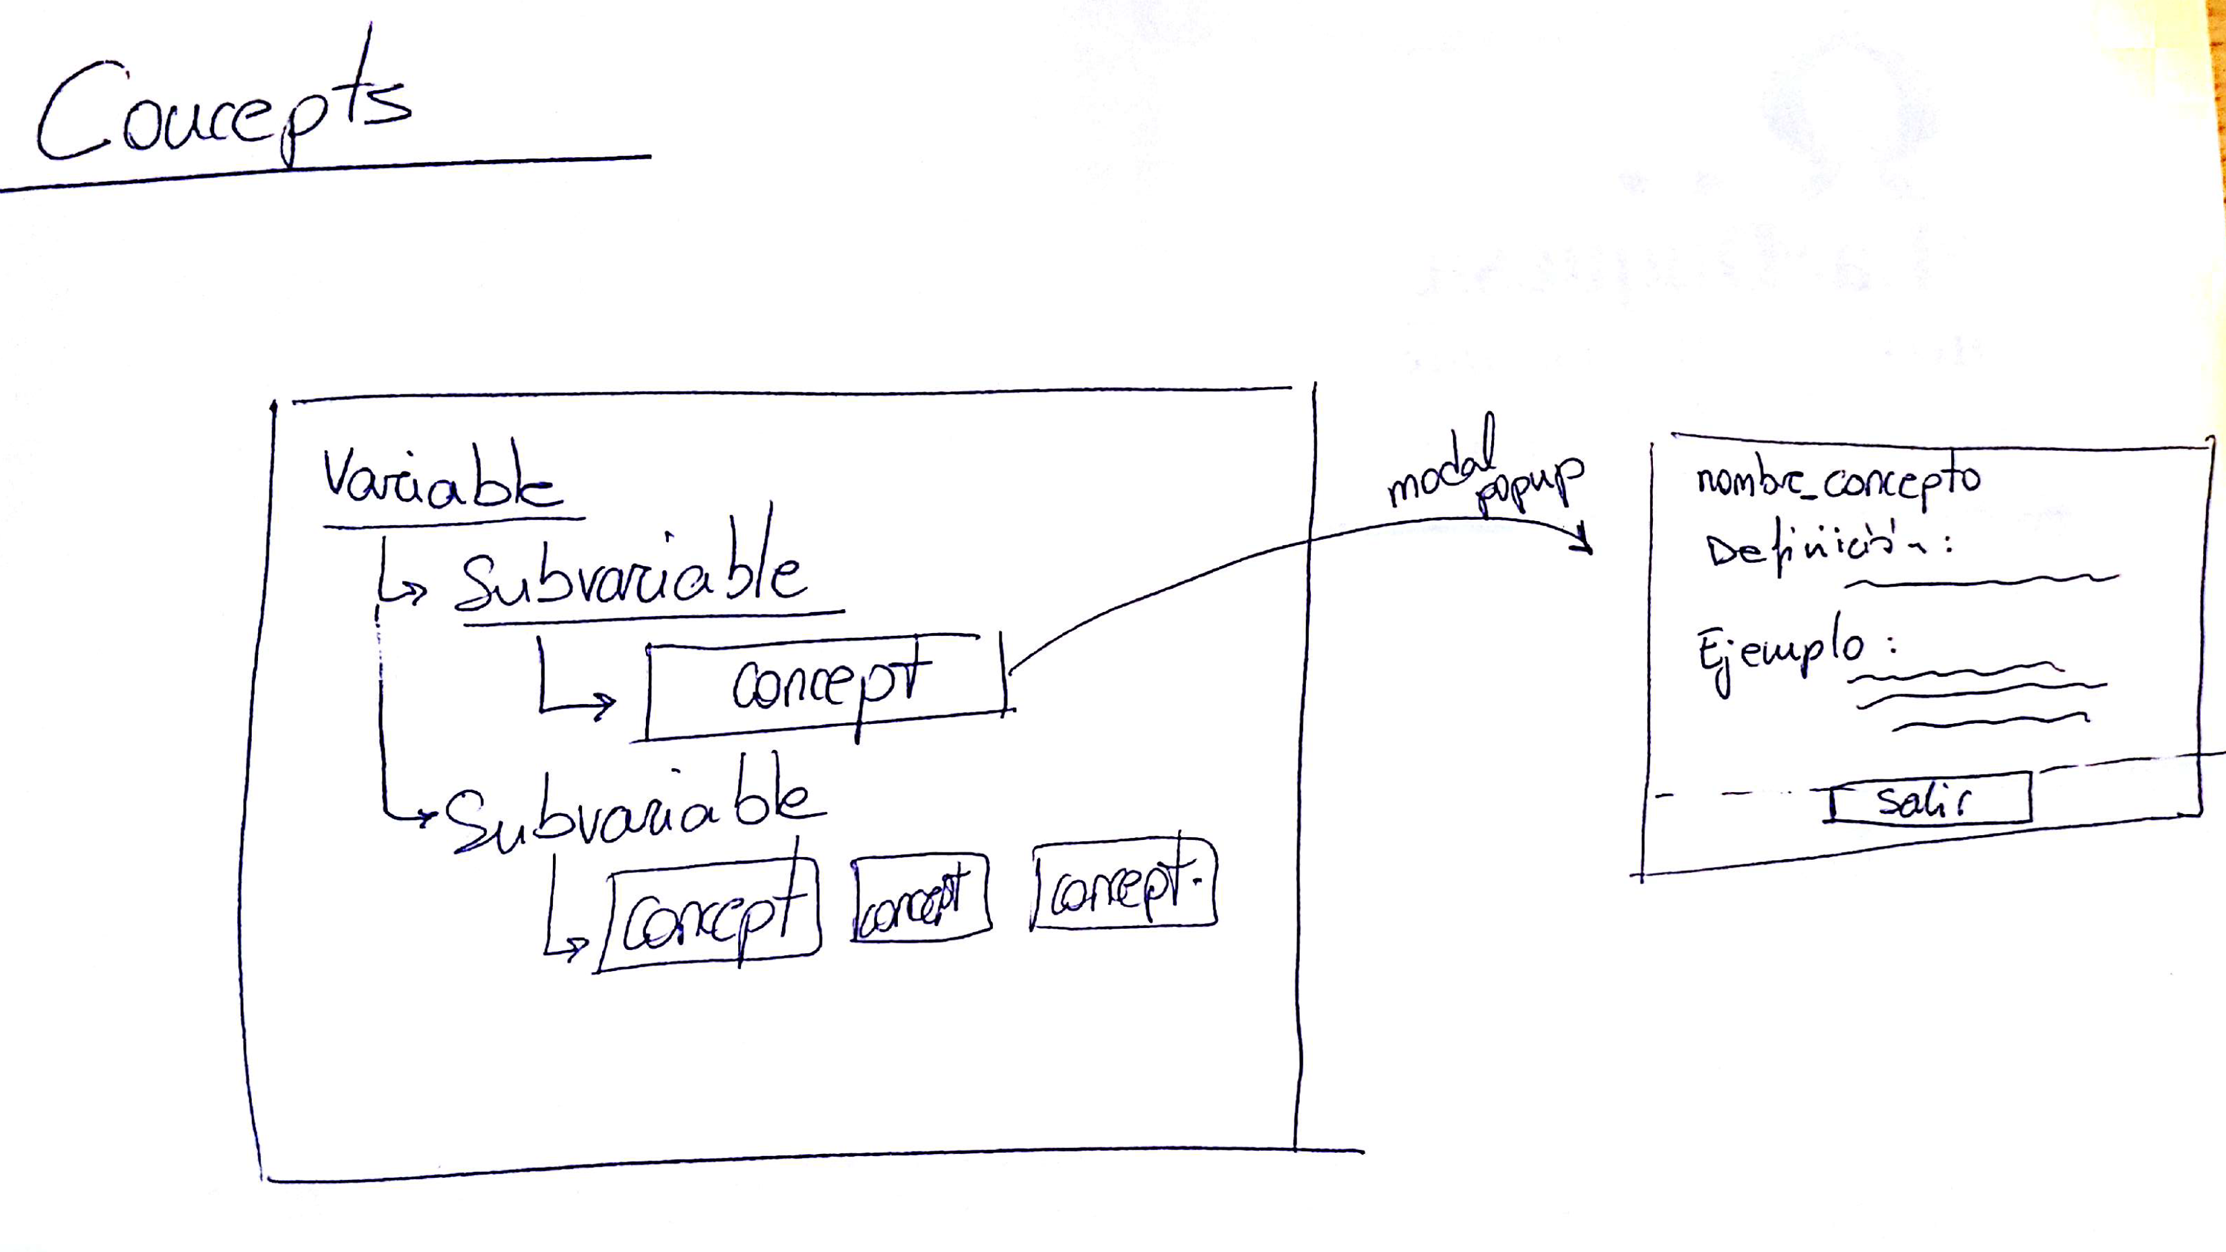 Concepts
Variable
Subvariable
concept
Subvariable
concept concept concept.
modal
popup
nombre_concepto
Definición:
Ejemplo:
Salir